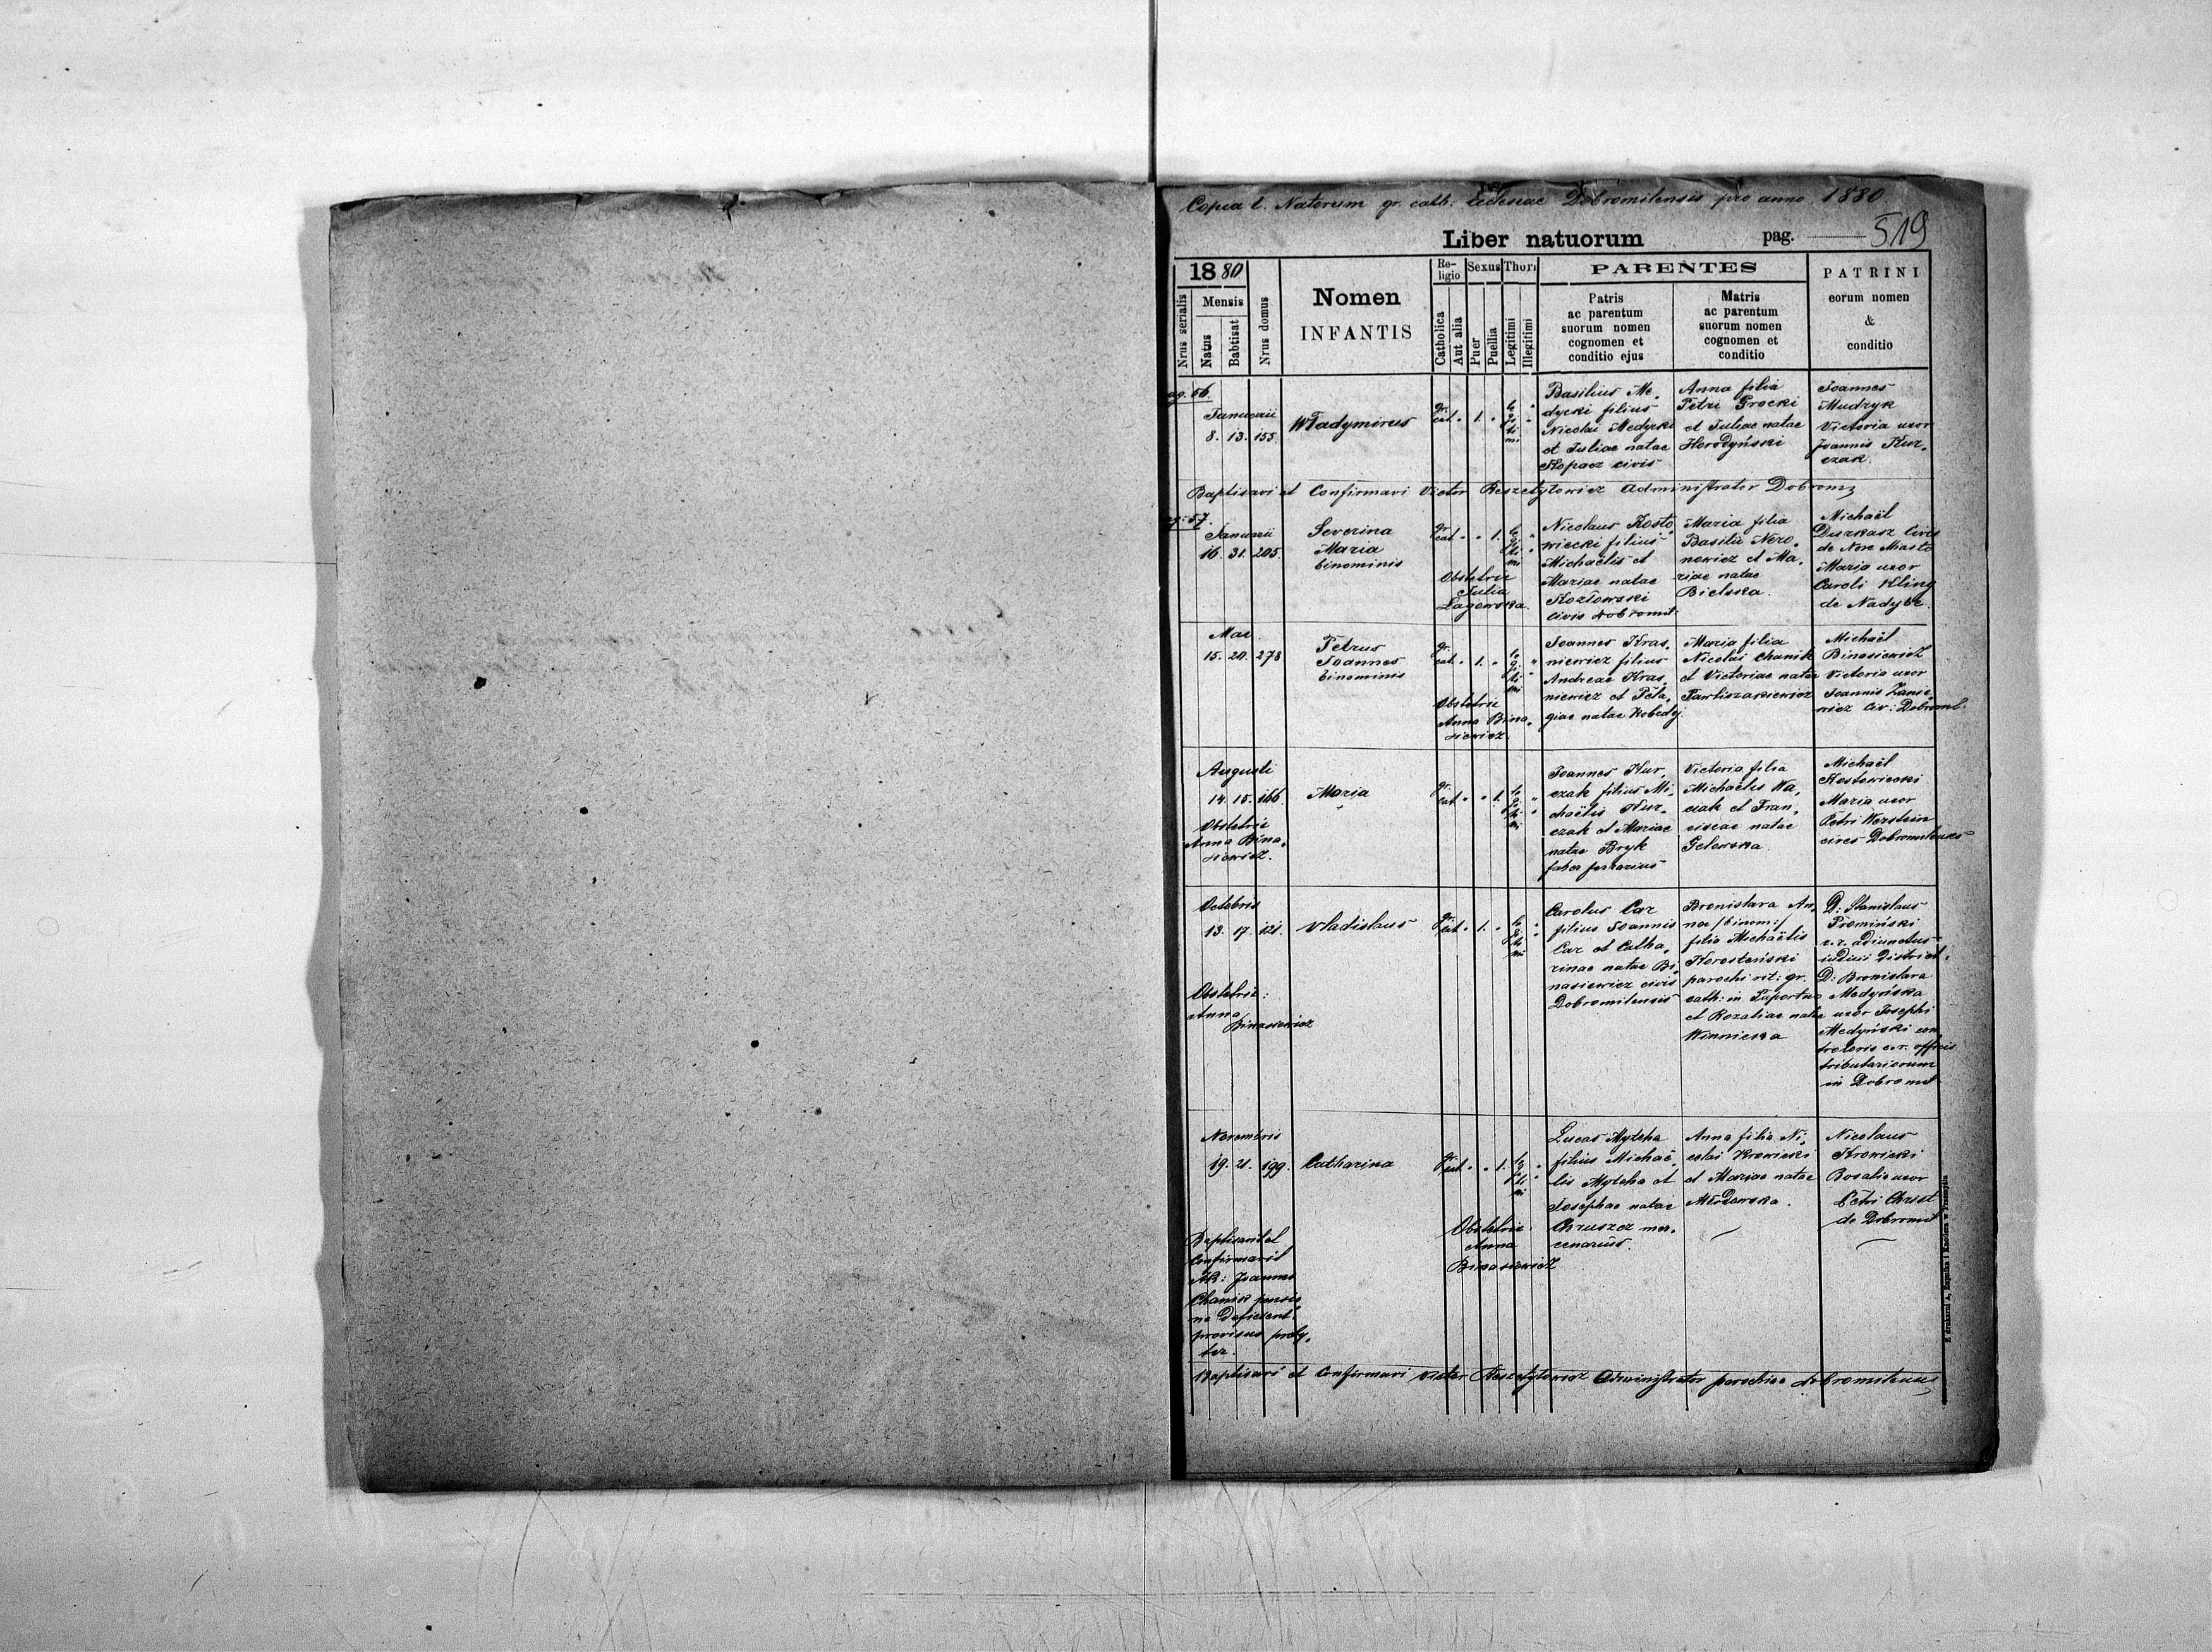 Copia l. Natorum gr. cath. Ecclesiae Dobromilensis pro anno 1880
519
Liber natuorum pag.
1880
Nrus serialis
Mensis
Natus
Babtisat
Nrus domus
Nomen
INFANTIS
Re-
ligio
Catholica
Aut alia
Sexus
Puer
Puella
Thori
Legitimi
Illegitimi
PARENTES
Patris
ac parentum
suorum nomen
cognomen et
conditio ejus
Matris
ac parentum
suorum nomen
cognomen et
conditio
PATRINI
eorum nomen
&
conditio
pag. 56.
Januarii
8. 13. 155.
Władymirus
gr.
cat. " 1. " le
gi
ti
mi "
Basilius Me-
dycki filius
Nicolai Medycki
et Juliae natae
Kopacz civis
Anna filia
Petri Grocki
et Juliae natae
Horodyński
Joannes
Mudryk
Victoria uxor
Joannis Kur-
czak.
Baptisavi et Confirmavi Victor Reszetyłowicz Administrator Dobrom
pag: 57.
Januarii
16. 31. 205.
Severina
Maria
binominis
gr.
cat. " " 1. le
gi
ti
mi "
Obstetrix
Julia
Lagowska.
Nicolaus Kosto-
wiecki filius
Michaëlis et
Mariae natae
Kozłowski
civis Dobromil.
Maria filia
Basilii Nero-
nowicz et Ma-
riae natae
Bielska.
Michaël
Durkasz Civis
de Nove Miasto
Maria uxor
Caroli Kling
de Nadybe.
Mai
15. 20. 278
Petrus
Joannes
binominis
gr.
cat. " 1. " le
gi
ti
mi "
Obstetrix
Anna Bina-
siewicz.
Joannes Kras-
niewicz filius
Andreae Kras-
niewicz et Pela-
giae natae Kobedy.
Maria filia
Nicolai Chanik
et Victoriae natae
Pawliszakiewicz
Michaël
Binasiewicz
Victoria uxor
Joannis Zanie-
wicz civ: Dobromil.
Augusti
14. 15. 166.
Obstetrix
Anna Bina-
siewicz.
Maria
gr.
cat " " 1. le
gi
ti
mi "
Joannes Kur-
czak filius Mi-
chaëlis Kur-
czak et Mariae
natae Bryk
faber ferrarius
Victoria filia
Michaëlis Wa-
siak et Fran-
ciscae natae
Gelewska.
Michaël
Kostowiecki
Maria uxor
Petri Werstein
cives Dobromilenses
Octobris
13. 17. 121.
Obstetrix:
Anna
Binasiewicz
Vladislaus
gr.
cat " 1. " le
gi
ti
mi "
Carolus Car
filius Joannis
Car et Catha-
rinae natae Bi-
nasiewicz civis
Dobromilensis
Bronislava An-
na /:binom:/
filia Michaëlis
Korosteński
parochi rit: gr.
cath: in
et Rozaliae natae
Winnicka
D: Stanislaus
Promiński
c. r. adiunctus
iudicii District.
D: Bronislava
Medyńska
uxor Josephi
Medyński con-
troloris c. r. officii
tributariorum
in Dobromil
Novembris
19. 21. 199.
Catharina
gr.
cat " " 1. le
gi
ti
mi "
Obstetrix
Anna
Binasiewicz
Lucas Mytcha
filius Michaë-
lis Mytcha et
Josephae natae
Chruszcz mer-
cenarius.
Anna filia Ni-
colai Krowicki
et Mariae natae
Nicolaus
Krowicki
Rosalia uxor
Petri Christ
de Dobromil
Baptisavit et
Confirmavit
AR: Joannes
Chanik pensio-
ne Deficient.
provisus praby-
ter.
Baptisavi et Confirmavi Victor Reszetyłowicz Administrator parochiae Dobromilensis
Z drukarni A. Żupnika i Knollera w Przemyślu